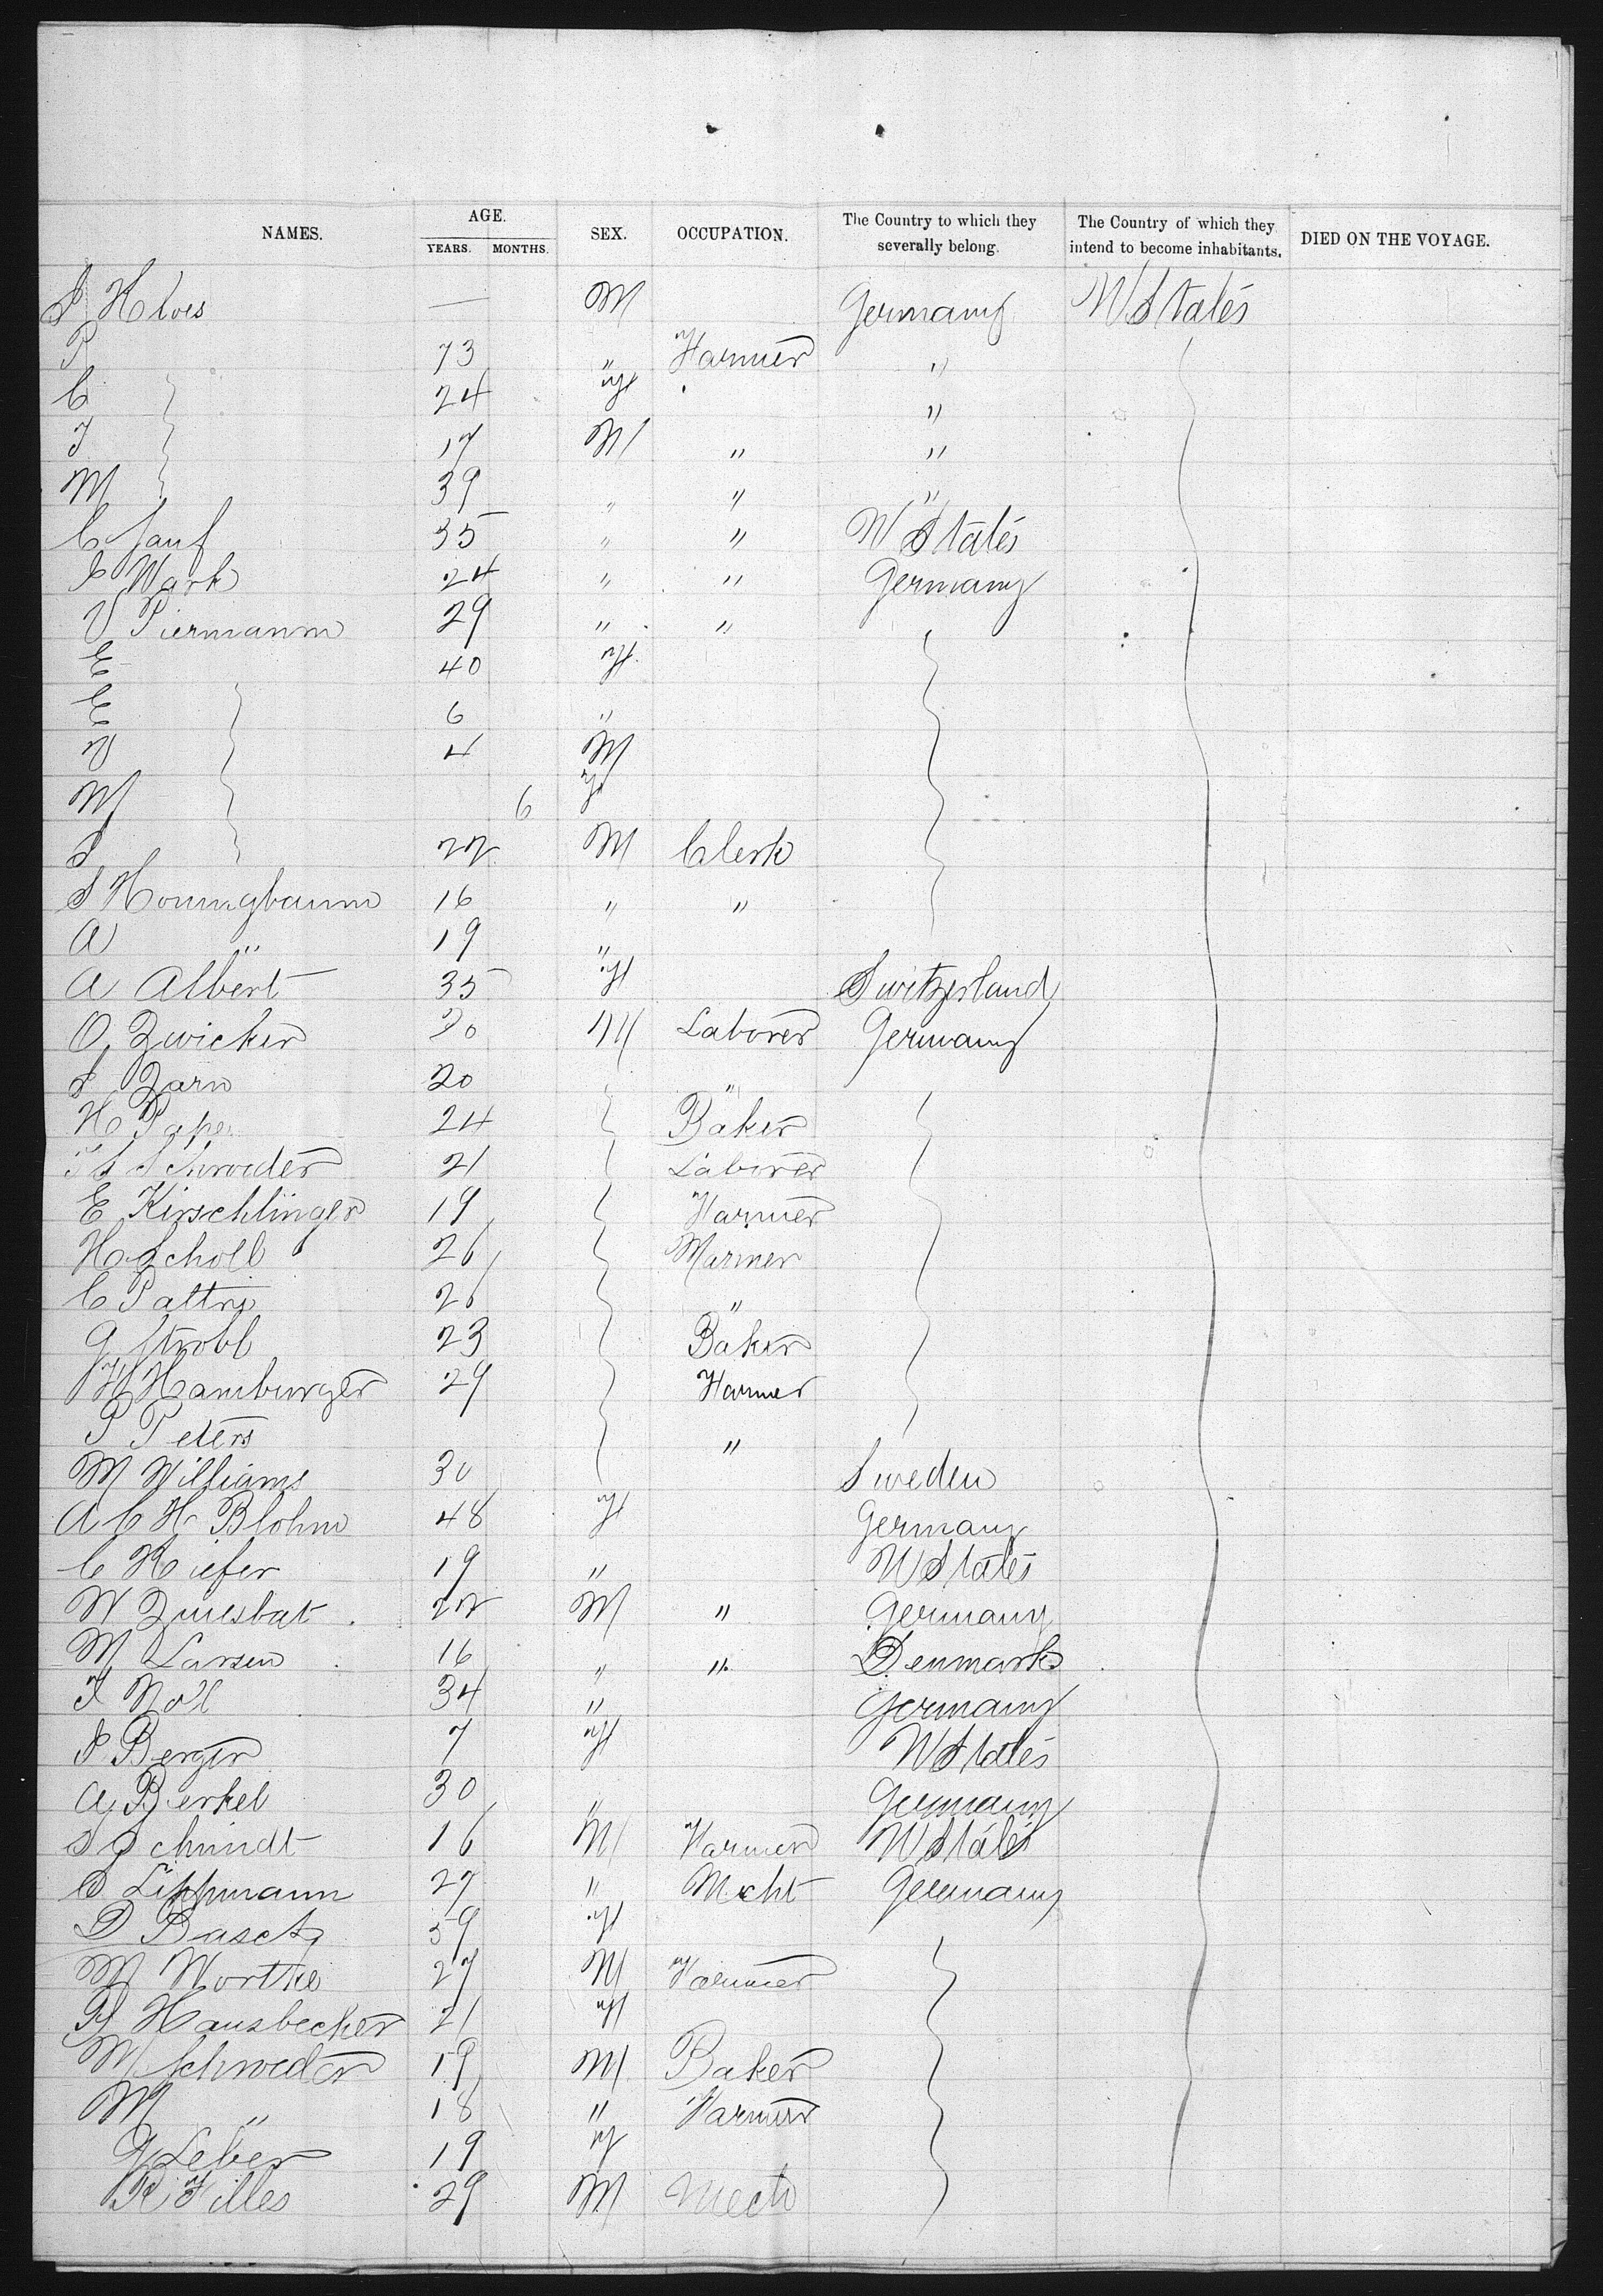 NAMES. AGE. YEARS. MONTHS. SEX. OCCUPATION. The Country to which they severally belong. The Country of which they intend to become inhabitants. DIED ON THE VOYAGE.
— M Germany U States
P 73 " Farmer "
C 24 F "
J 17 M " "
M 39 " " "
C Jauf 35 " " U States
C Wark 24 " " Germany
V Piermann 29 " "
E 40 F
C 6 "
V 4 M
M 6 F
S 22 M Clerk
S Honungbaum 16 " "
A " 19 "
A Albert 35 F Switzerland
O Zwicker 20 M Laborer Germany
S Zarn 20 "
H Pape 24 Baker
Schroeder 21 Laborer
E Kirschlinger 19 Farmer
H Scholl 26 Mariner
C Pattri 26 "
G Strobl 23 Baker
H Hamburger 29 Farmer
P Peters "
M Williams 30 Sweden
A C H Blohm 48 F Germany
C Kiefer 19 " U States
W 22 M " Germany
M Larsen 16 " " Denmark
J Noll 34 " Germany
S Berger 7 F U States
A Berkel 30 " Germany
S Schmidt 16 M Farmer U States
C Lippmann 27 " Mcht Germany
D Basch 59 F
M Wortke 27 M Farmer
B Hausbecker 21 F
M Schroeder 19 M Baker
M " 18 " Farmer
G Leber 19 F
R Filles 29 M